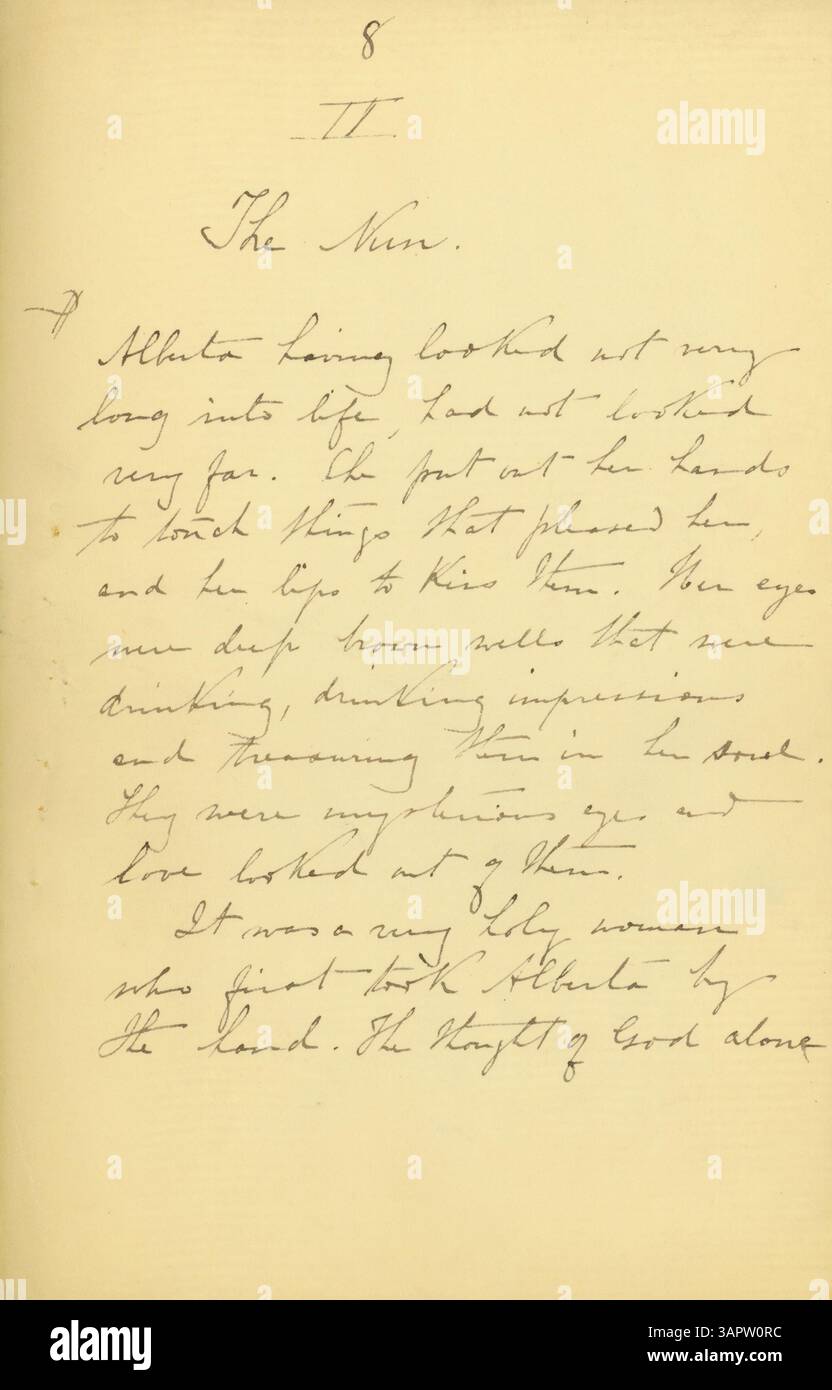 8
II
The Nun.
Alberta having looked not very
long into life, had not looked
very far. She put out her hands
to touch things that pleased her,
and her lips to kiss them. Her eyes
were deep brown wells that were
drinking, drinking impressions
and treasuring them in her soul.
They were mysterious eyes and
love looked out of them.
It was a very holy woman
who first took Alberta by
the hand. The thought of God alone
alamy
Image ID: 3APW0RC
www.alamy.com